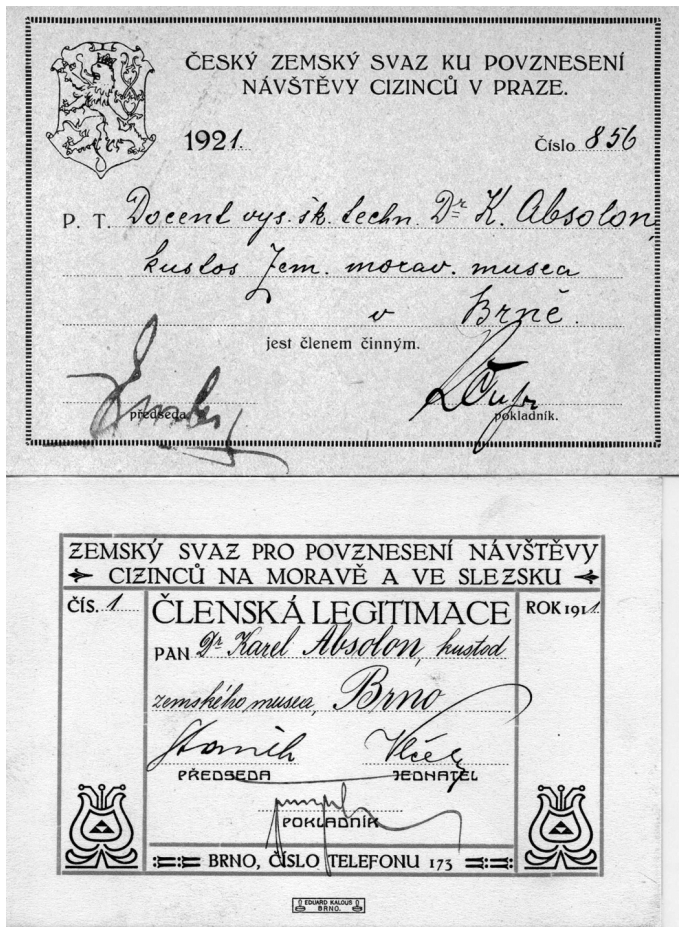 ČESKÝ ZEMSKÝ SVAZ KU POVZNESENÍ
NÁVŠTĚVY CIZINCŮ V PRAZE.
1921. Číslo 856
P. T. Docent vys. šk. techn. Dr K. Absolon,
kustos Zem. morav. musea
v Brně.
jest členem činným.
předseda. pokladník.
ZEMSKÝ SVAZ PRO POVZNESENÍ NÁVŠTĚVY
CIZINCŮ NA MORAVĚ A VE SLEZSKU
ČÍS. 1 ČLENSKÁ LEGITIMACE ROK 1911
PAN Dr Karel Absolon, kustod
zemského musea, Brno
PŘEDSEDA JEDNATEL
POKLADNÍK
BRNO, ČÍSLO TELEFONU 173
EDUARD KALOUS
BRNO.